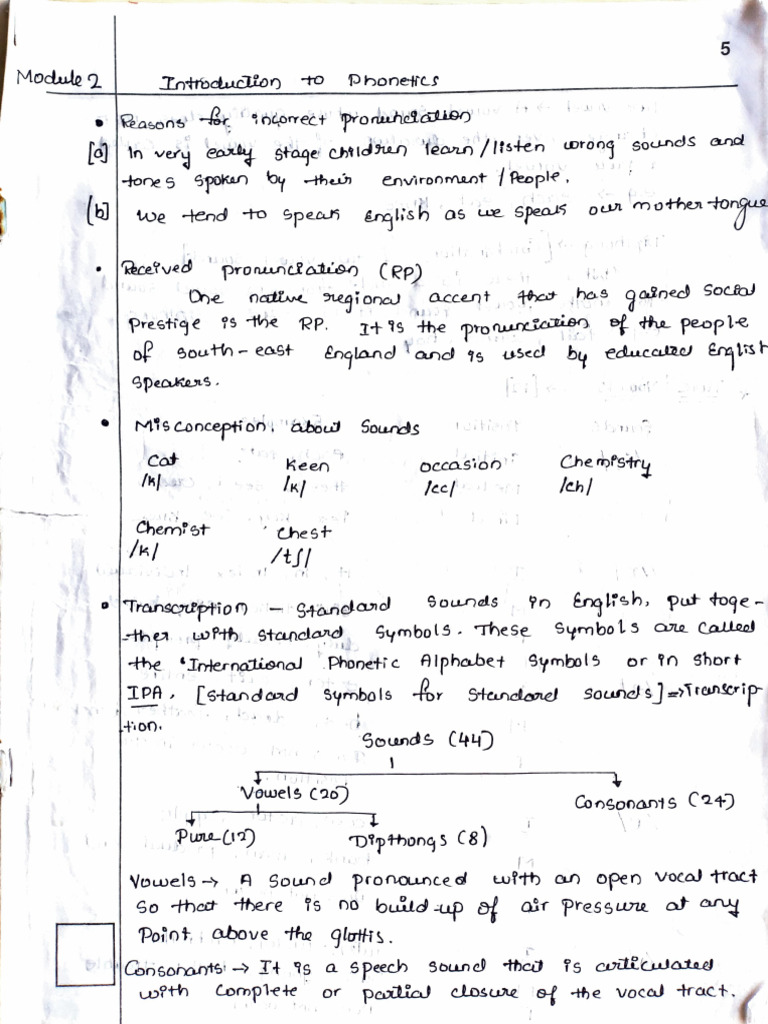 5
Module 2 Introduction to Phonetics
• Reasons for incorrect pronunciation
[a] In very early stage children learn/listen wrong sounds and
tones spoken by their environment/People.
[b] We tend to speak English as we speak our mother tongue
• Received pronunciation (RP)
One native regional accent that has gained social
Prestige is the RP. It is the pronunciation of the people
of south-east England and is used by educated English
speakers.
• Misconception about sounds
Cat Keen occasion Chemistry
/k/ /k/ /cc/ /ch/
Chemist Chest
/k/ /tʃ/
• Transcription - Standard sounds in English, put toge-
-ther with standard symbols. These symbols are called
the 'International Phonetic Alphabet Symbols or in short
IPA. [Standard symbols for standard sounds] ⇒ Transcrip-
tion.
Sounds (44)
Vowels (20) Consonants (24)
Pure (12) Dipthongs (8)
Vowels → A sound pronounced with an open vocal tract
so that there is no build-up of air pressure at any
Point above the glottis.
Consonants → It is a speech sound that is articulated
with complete or partial closure of the vocal tract.